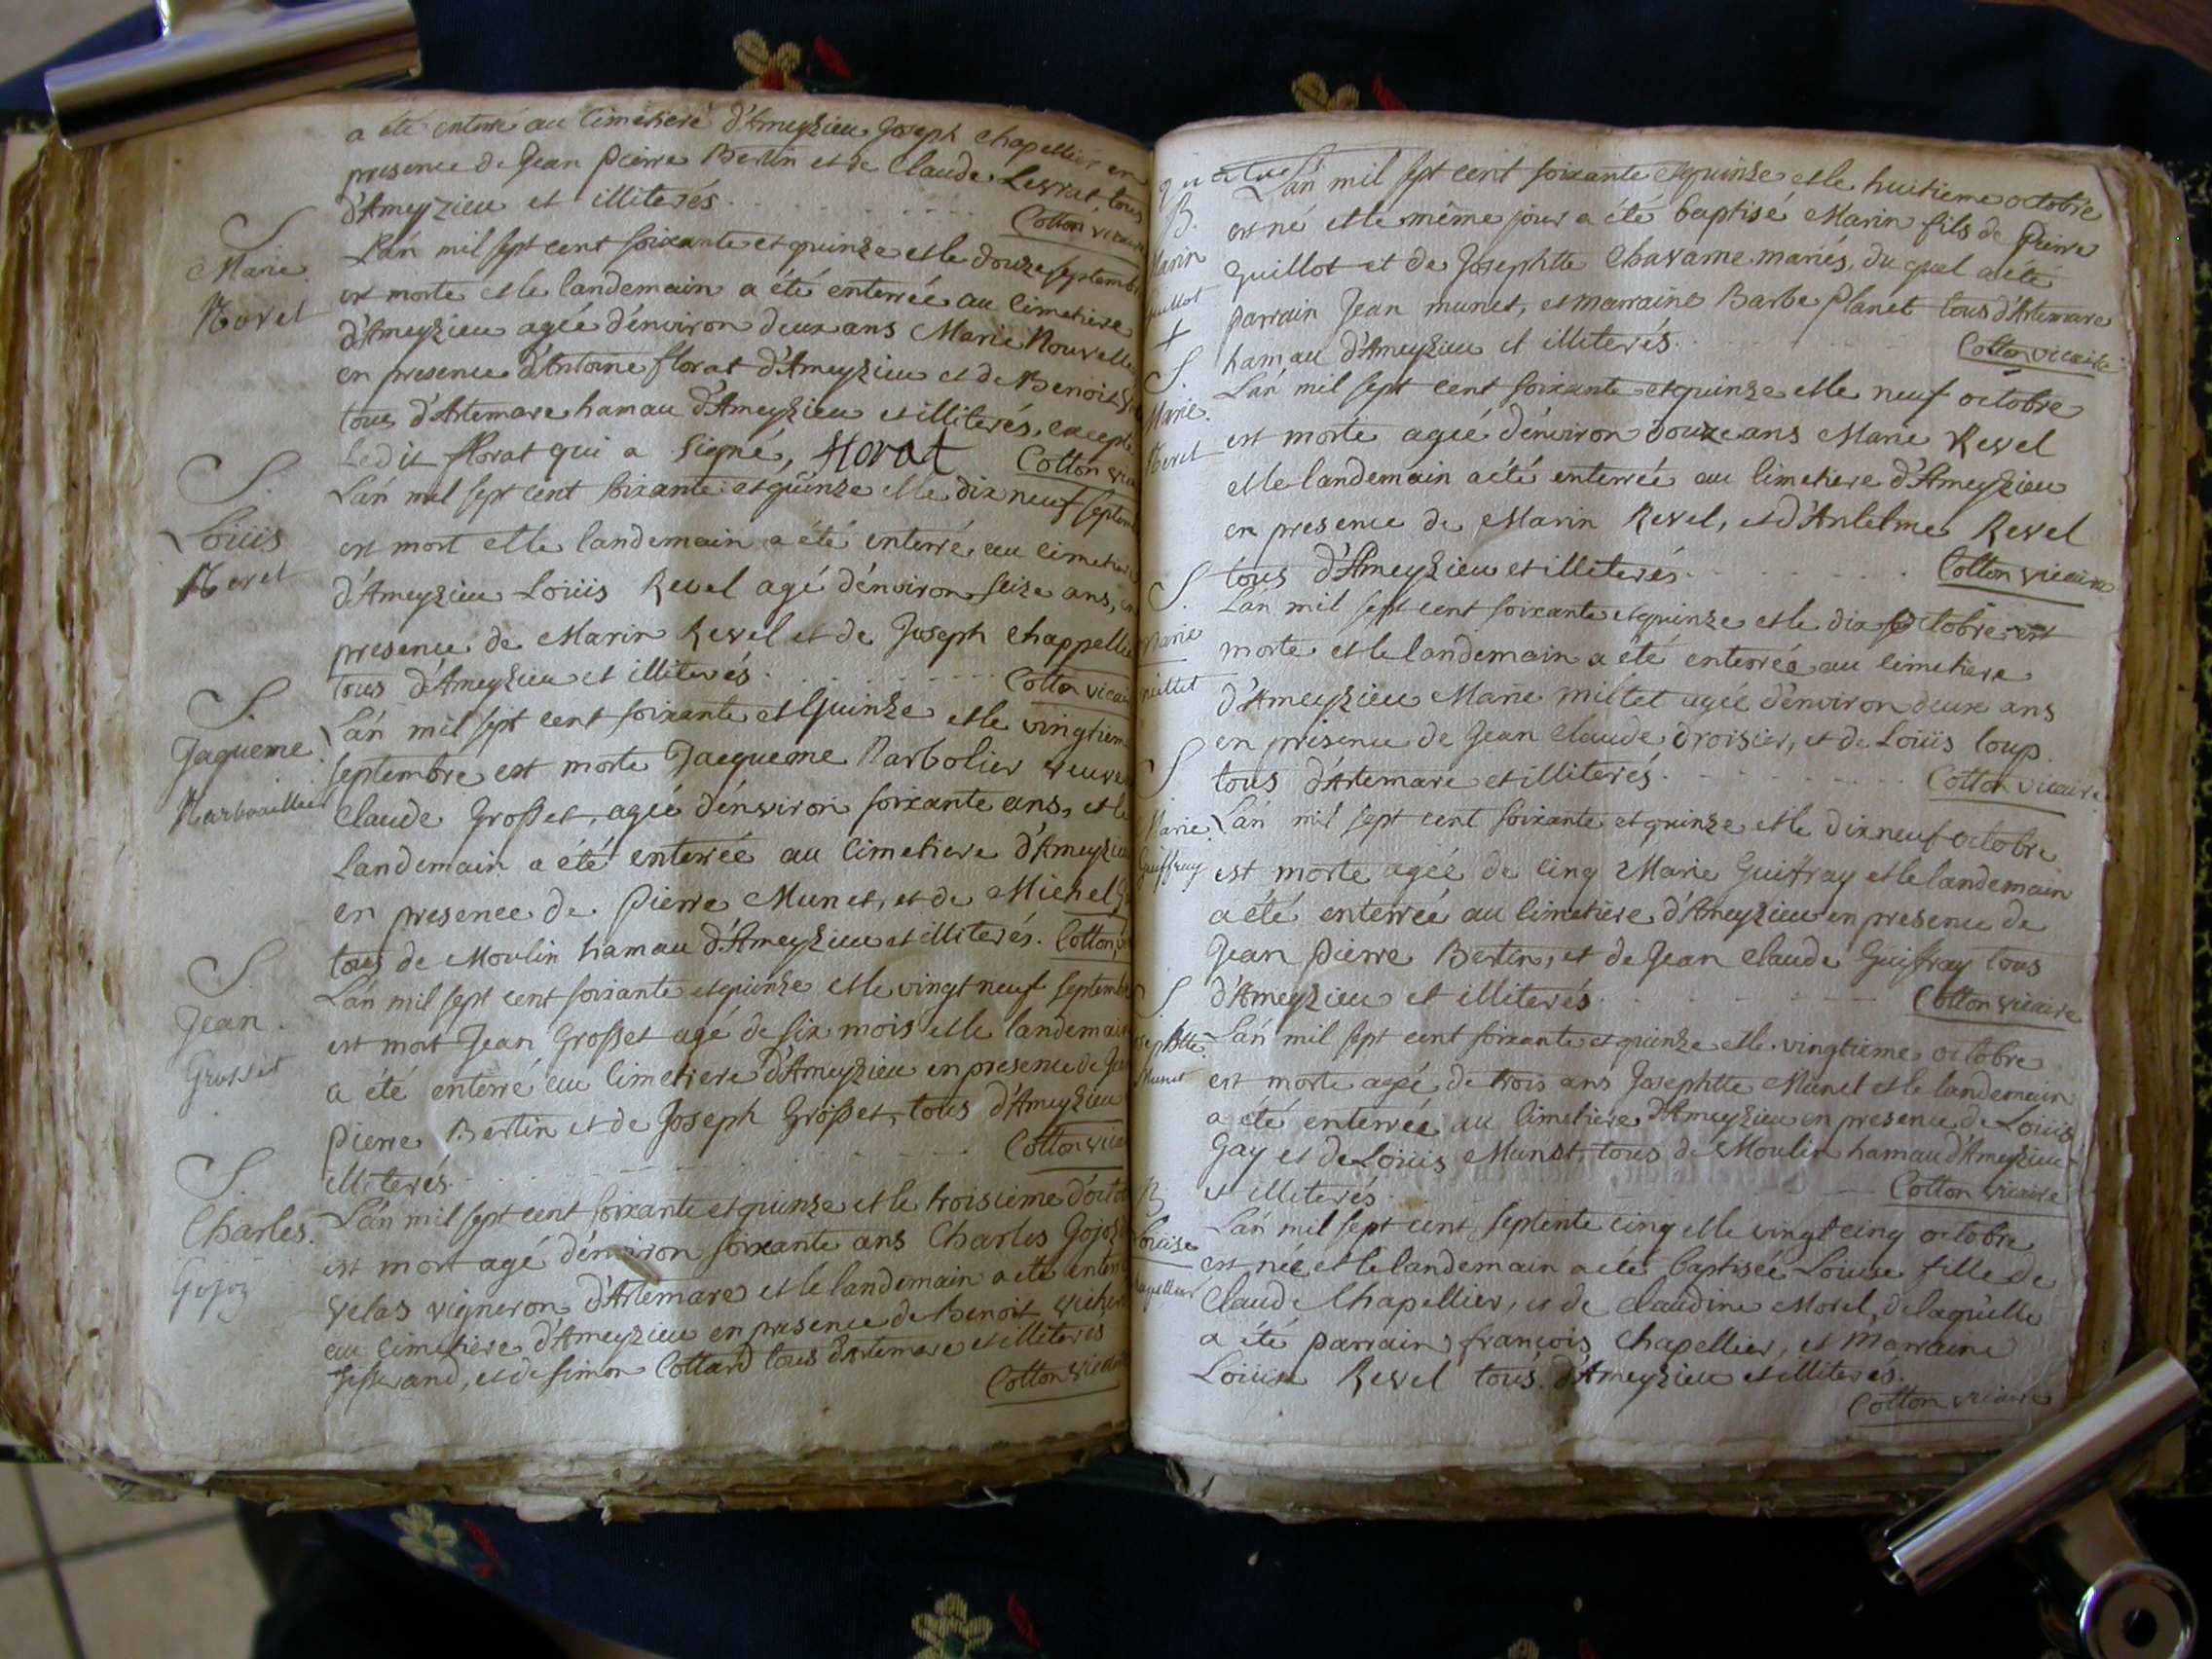 a été enterré au cimetiere d'Ameyzieu Joseph chapellier en
presence de Jean pierre Bertin et de Claude Levrat tous
d'Ameyzieu et illiterés
Cotton vicaire
S
Marie
L'an mil sept cent soixante et quinze et le douze septembre
est morte et le landemain a été enterrée au cimetiere
d'Ameyzieu agée d'environ deux ans Marie Nouvelle
en presence d'Antoine florat d'Ameyzieu et de Benoit
tous d'Artemare hamau d'Ameyzieu et illiterés, excepté
ledit florat qui a signé, florat Cotton
S.
Loüis
Revel
L'an mil sept cent soixante et quinze et le dix neuf septem
est mort et le landemain a été enterré au cimetiere
d'Ameyzieu Loüis Revel agé d'environ seize ans, en
presence de Marin Revel et de Joseph Chappellie
tous d'Ameyzieu et illiterés
Cotton vicai
S.
Jaqueme
L'an mil sept cent soixante et quinze et le vingtiem
septembre est morte Jacqueme Narbolier veuve
Claude Grosset, agée d'environ soixante ans, et le
landemain a été enterrée au cimetiere d'Ameyzieu
en presence de pierre Munet, et de Michel
tous de Moulin hamau d'Ameyzieu et illiterés. Cotton
S
Jean
Grosset
L'an mil sept cent soixante et quinze et le vingt neuf septembre
est mort Jean Grosset agé de six mois et le landemain
a été enterré au cimetiere d'Ameyzieu en presence de Jean
pierre Bertin et de Joseph Grosset, tous d'Ameyzieu
illiterés
Cotton vicai
S.
Charles
Gojoz
L'an mil sept cent soixante et quinze et le troisieme d'octo
est mort agé d'environ soixante ans Charles Gojoz
velas vigneron d'Artemare et le landemain a été enterré
au cimetiere d'Ameyzieu en presence de Benoit
tisserand, et de simon Cottard tous d'Artemare et illiterés
Cotton vicaire
B.
Marin
Guillot
+
L'an mil sept cent soixante et quinze et le huitieme octobre
est né et le même jour a été baptisé Marin fils de pierre
Guillot et de Josephtte Chavame mariés, du quel a été
parrain Jean munet, et marraine Barbe planet tous d'Artemare
hamau d'Ameyzieu et illiterés.
Cotton vicaire
S.
Marie
Revel
L'an mil sept cent soixante et quinze et le neuf octobre
est morte agée d'environ douze ans Marie Revel
et le landemain a été enterrée au cimetiere d'Ameyzieu
en presence de Marin Revel, et d'Antelme Revel
tous d'Ameyzieu et illiterés
Cotton vicaire
S.
Marie
millet
L'an mil sept cent soixante et quinze et le dix octobre est
morte et le landemain a été enterrée au cimetiere
d'Ameyzieu Marie millet agée d'environ deux ans
en presence de Jean Claude droisier, et de Loüis loup
tous d'Artemare et illiterés
Cotton vicaire
S
Marie
Guiffray
L'an mil sept cent soixante et quinze et le dix neuf octobre
est morte agée de cinq Marie Guiffray et le landemain
a été enterrée au cimetiere d'Ameyzieu en presence de
Jean pierre Bertin, et de Jean Claude Guiffray tous
d'Ameyzieu et illiterés
Cotton vicaire
S
Josephtte
Munet
L'an mil sept cent soixante et quinze et le vingtieme octobre
est morte agée de trois ans Josephtte Munet et le landemain
a été enterrée au cimetiere d'Ameyzieu en presence de Loüis
Gay et de Loüis Munet, tous de Moulin hamau d'Ameyzieu
et illiterés
Cotton vicaire
B
Loüise
Chapellier
L'an mil sept cent septente cinq et le vingt cinq octobre
est née et le landemain a été baptisée Louise fille de
Claude Chapellier, et de Claudine Morel, de laquelle
a été parrain françois Chapellier, et marraine
Loüise Revel tous d'Ameyzieu et illiterés.
Cotton vicaire